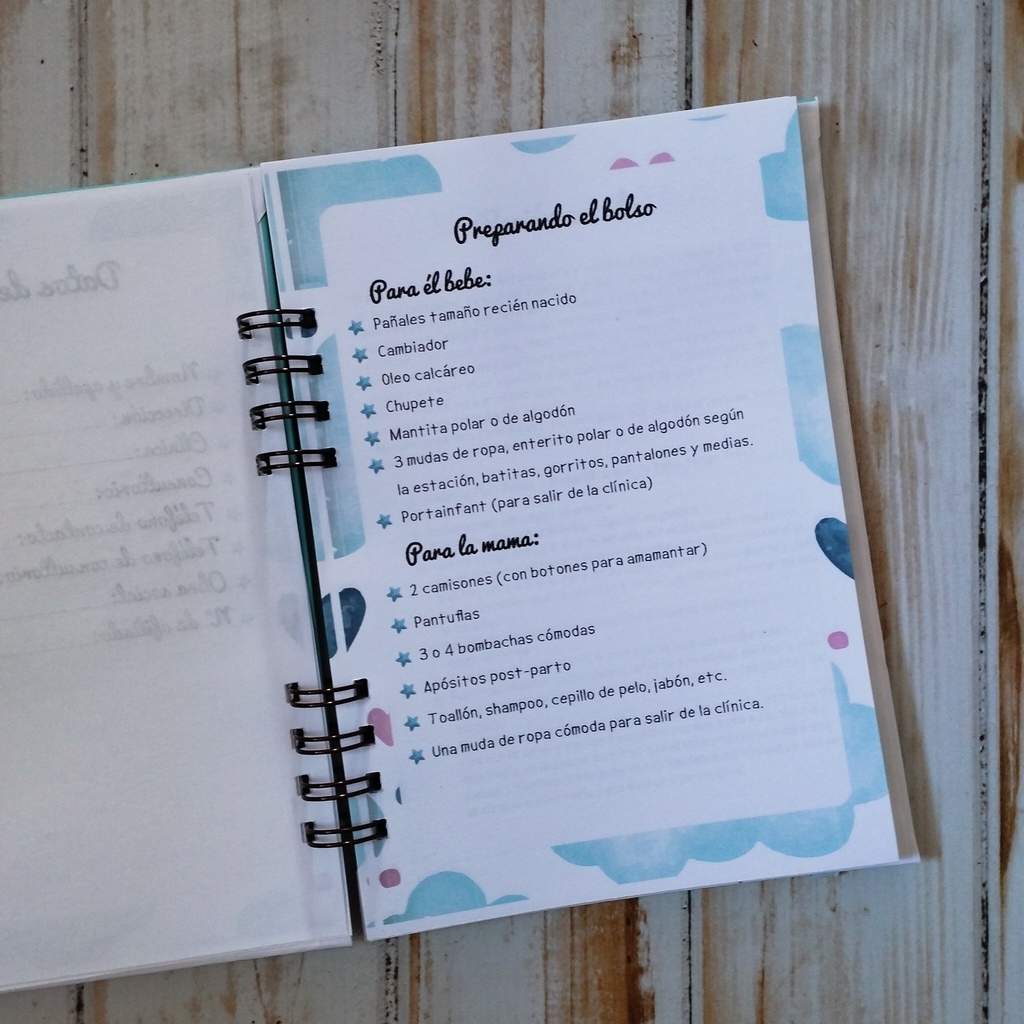 Preparando el bolso
Para él bebe:
Pañales tamaño recién nacido
Cambiador
Oleo calcáreo
Chupete
Mantita polar o de algodón
3 mudas de ropa, enterito polar o de algodón según
la estación, batitas, gorritos, pantalones y medias.
Portainfant (para salir de la clínica)
Para la mama:
2 camisones (con botones para amamantar)
Pantuflas
3 o 4 bombachas cómodas
Apósitos post-parto
Toallón, shampoo, cepillo de pelo, jabón, etc.
Una muda de ropa cómoda para salir de la clínica.
Datos de
Nombre y apellido:
Dirección:
Clínica:
Consultorio:
Teléfono de contacto:
Teléfono de consultorio:
Obra social:
N° de afiliado: